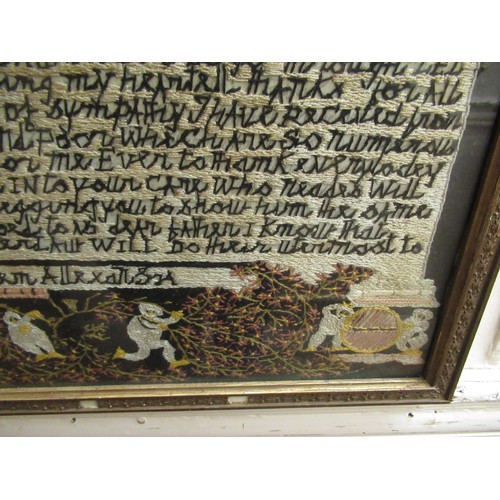 ing my heartell thanks For All
of sympathy I have received from
And Poor Which Are so numerous
or me Ever to thank everybodey
INto your Care Who needes Will
egging you to show him the same
to is dear father I know that
er LAW Will Do their utermost to
Allexandra